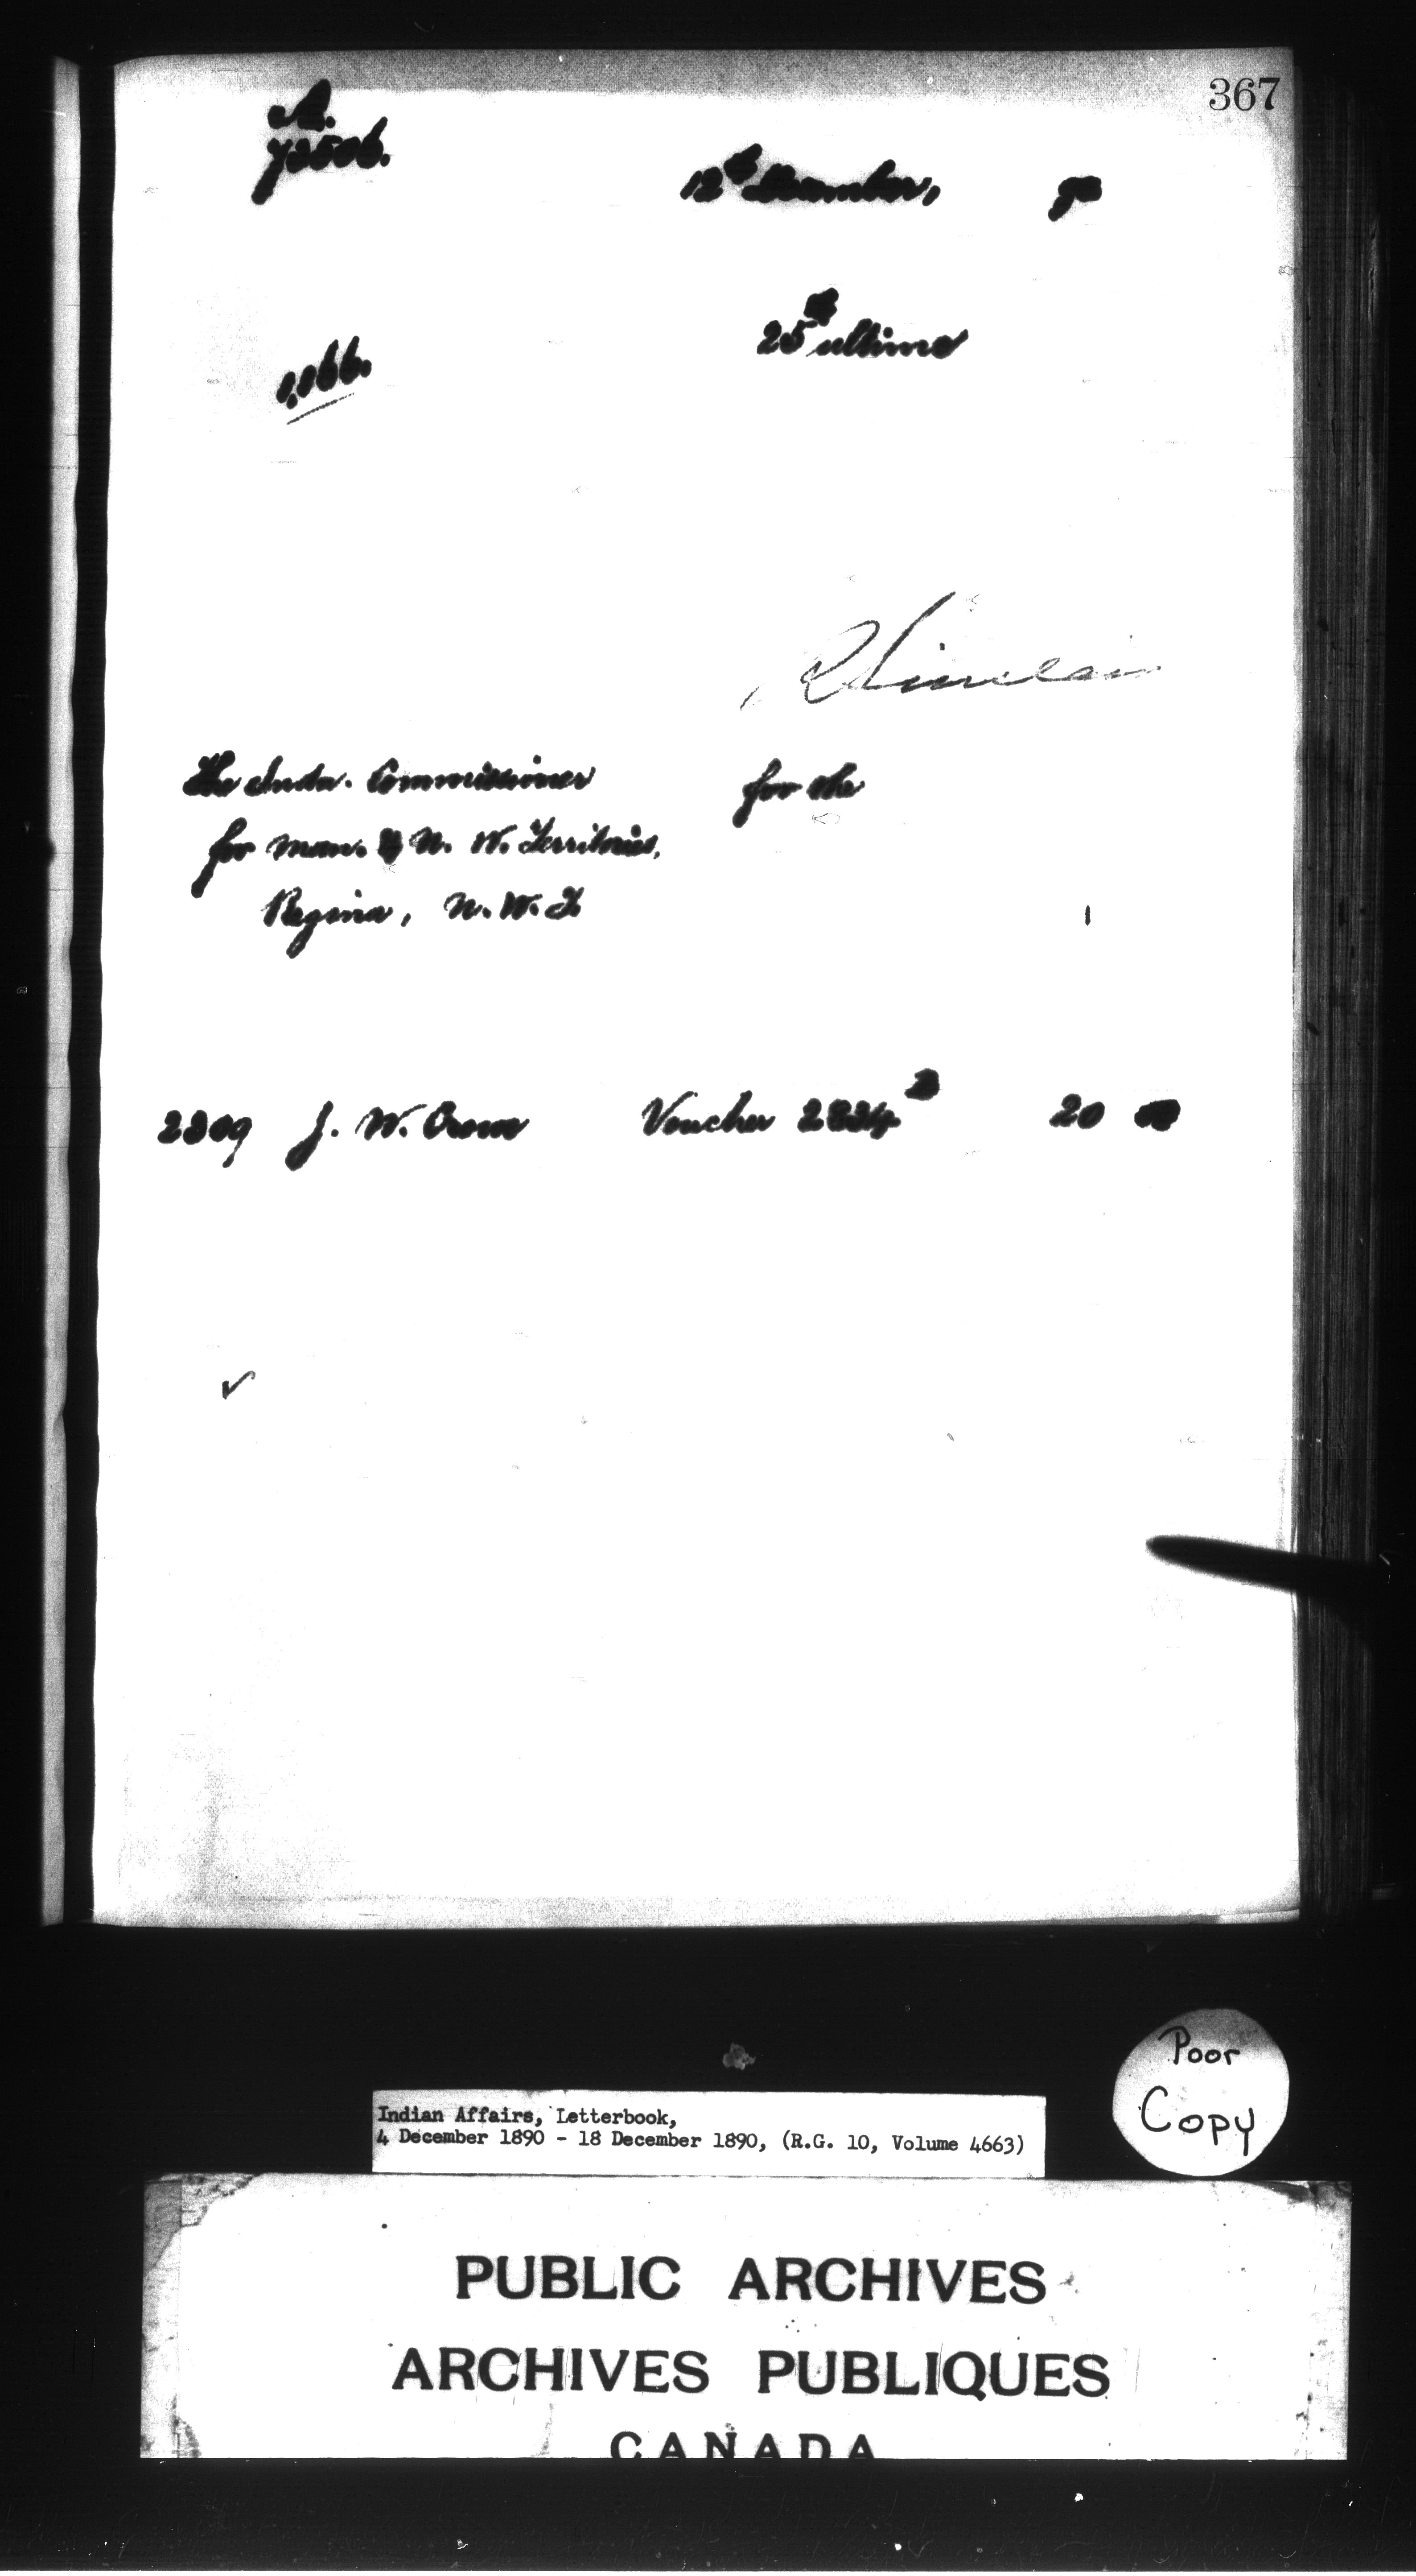 367
A.
73506.
12th December, 90
25th ultimo
1,066.
R Sinclair
The Indn. Commissioner for the
for Man. & N. W. Territories,
Regina, N. W. T
2309 J. W. Crowe Voucher 20
Poor
Copy
Indian Affairs, Letterbook,
4 December 1890 - 18 December 1890, (R.G. 10, Volume 4663)
PUBLIC ARCHIVES
ARCHIVES PUBLIQUES
CANADA